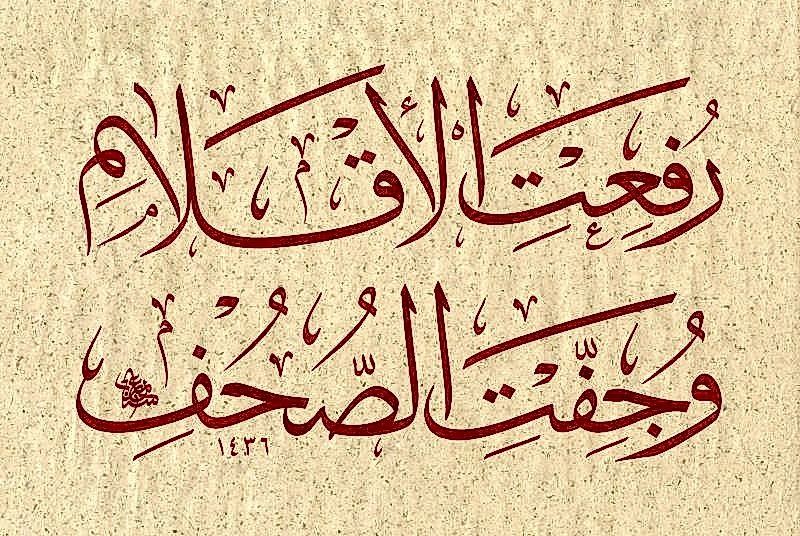 رفعت الأقلام
وجفّت الصّحف
١٤٣٦